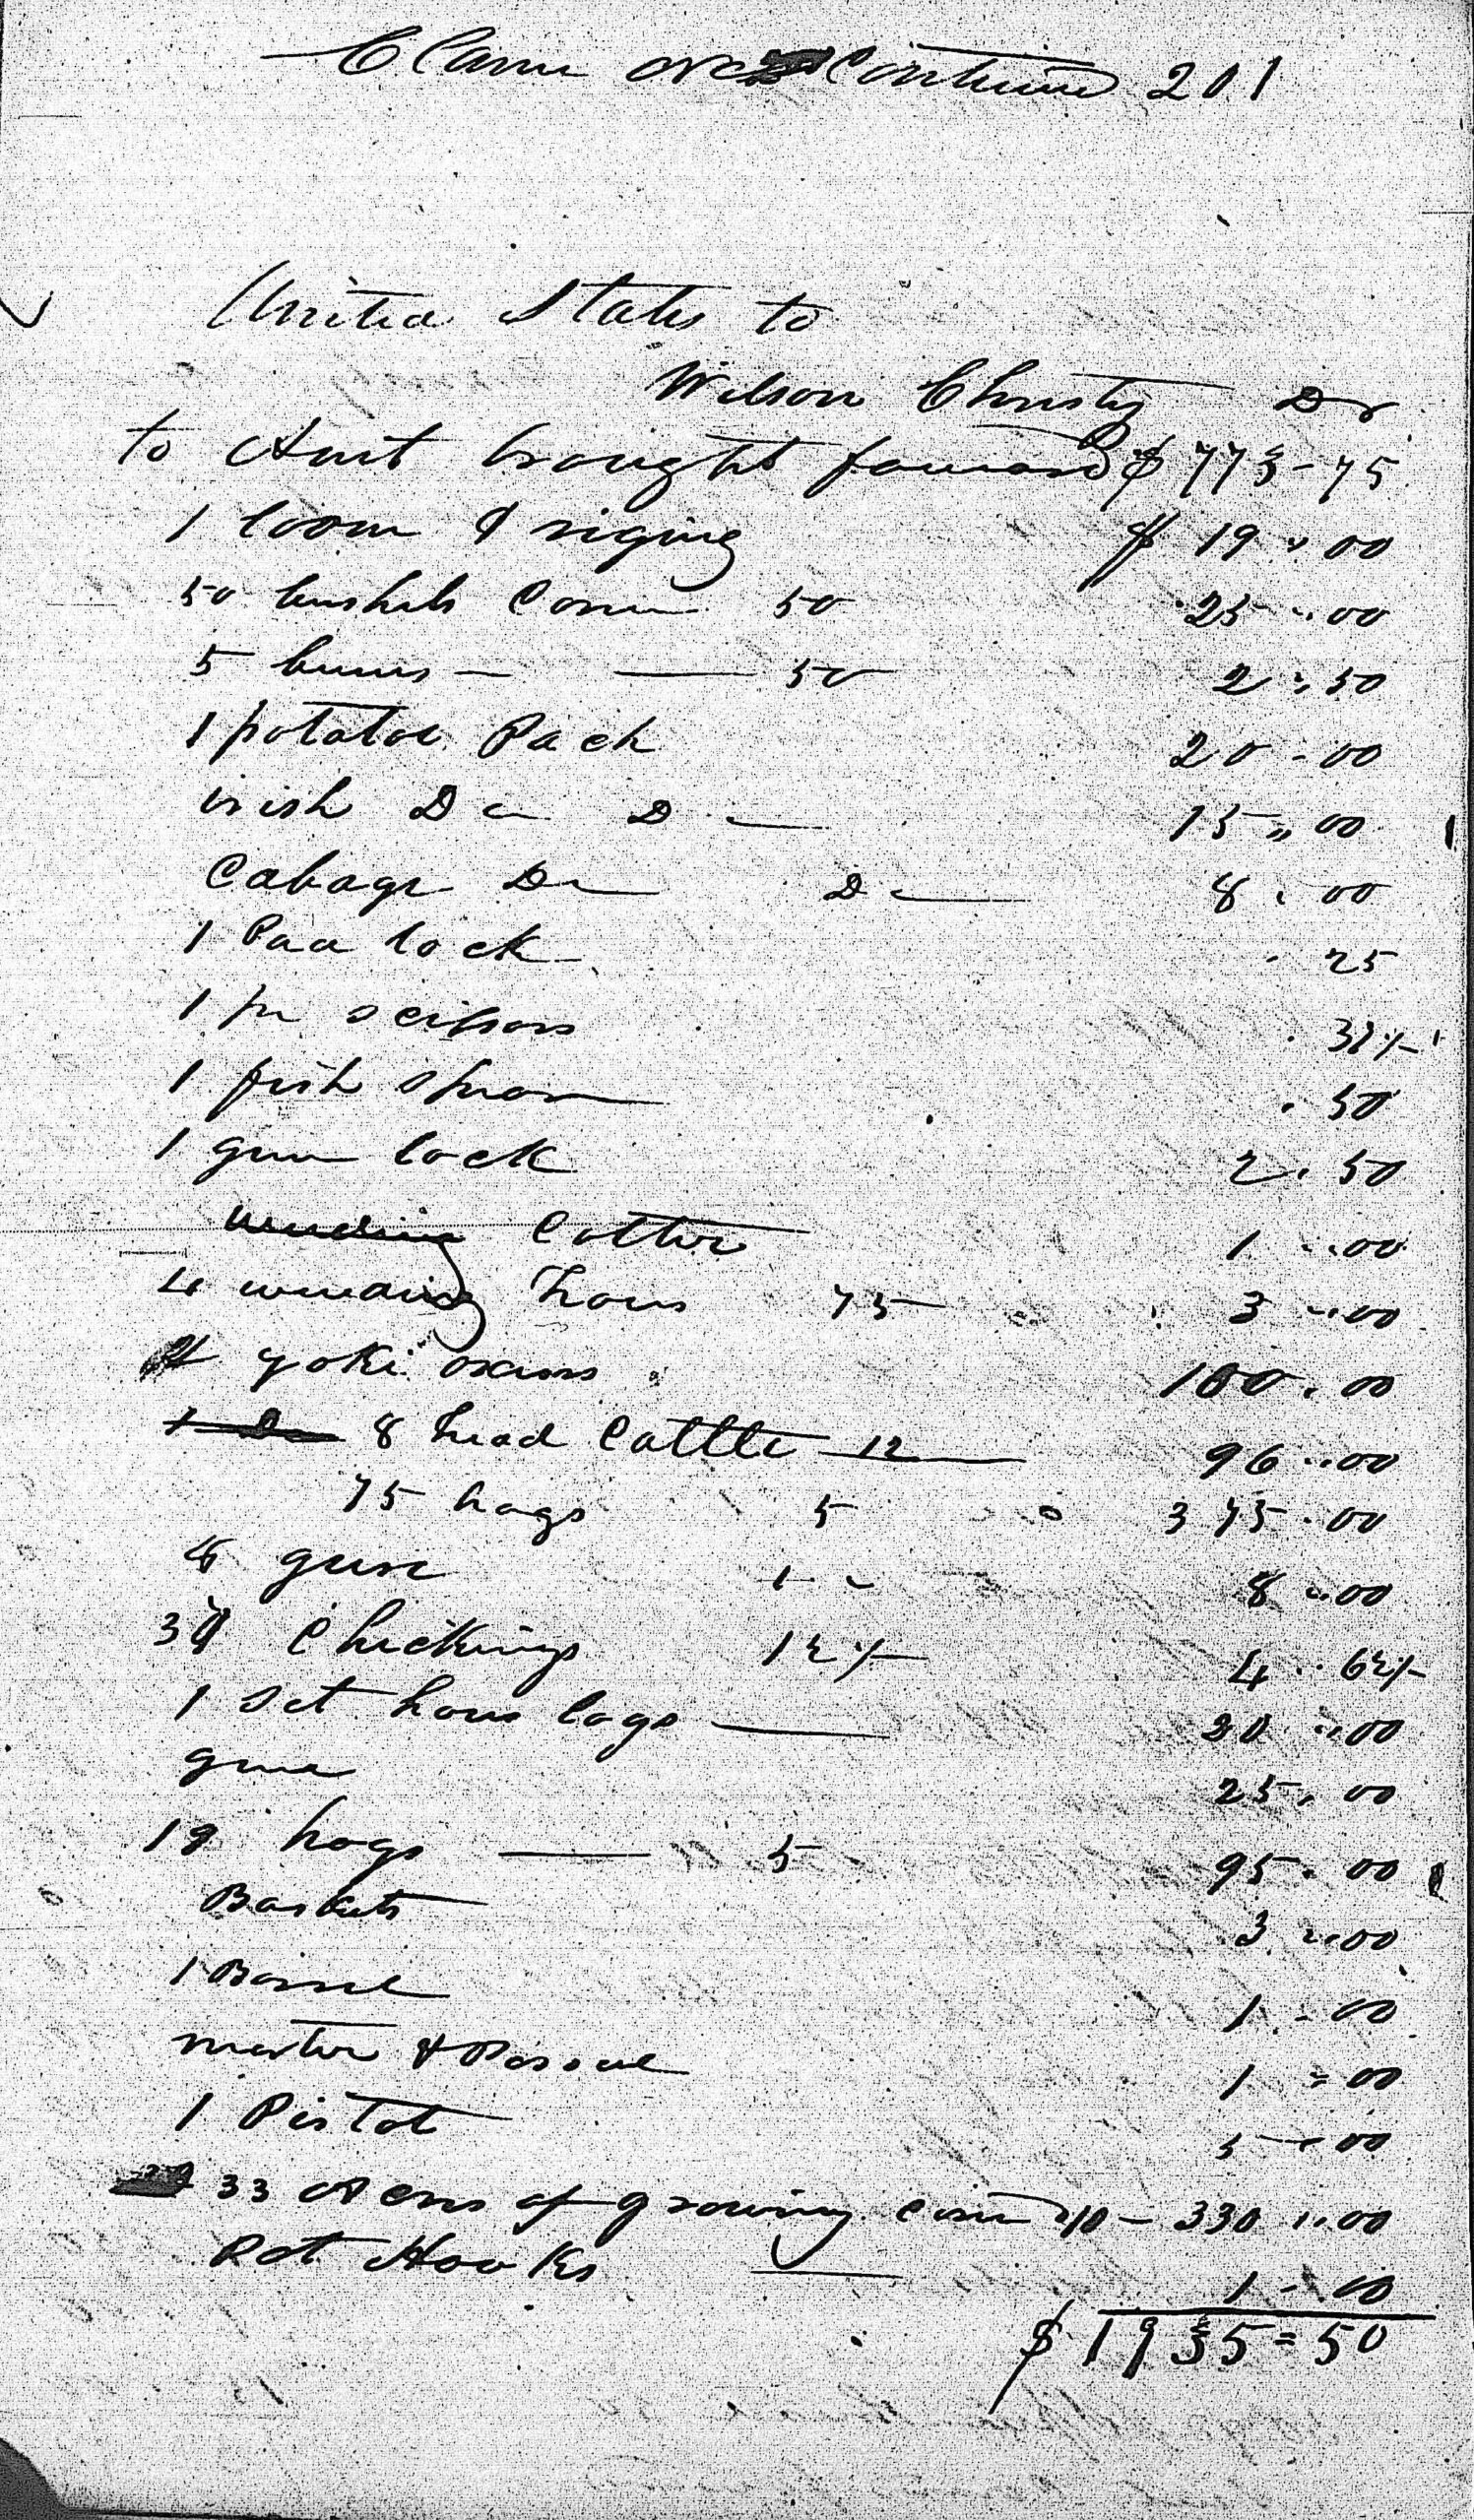 Claim over Continued 201
United States to
Wilson Christy Dr
to Amt brought forward $ 773-75
1 loom & riging $ 19 " 00
50 bushels Corn 50 25 " 00
5 — — 50 2 " 50
1 potatoe Pach 20 - 00
irish Do Do — 15 " 00
Cabage Do Do — 8 . 00
1 Pad lock - 25
1 pr scissors . 37½
1 fish . 50
1 gun lock 2 . 50
Cotton 1 .. 00
4 weading hows 75 3 " 00
yoke oxens 100 . 00
8 head Cattle 12 — 96 " 00
75 hogs 5 375 . 00
8 geese 1 - 8 " 00
37 Chickings 12½ 4 .. 62½
1 Set hous logs — 20 " 00
25 . 00
19 hogs — 5 95 . 00
Baskets 3 " 00
1 Barrel 1 - 00
morter & 1 = 00
1 Pistol 5 - 00
33 Acres of growing corn 10 - 330 " 00
Pot Hooks — 1 - 00
$ 1935=50